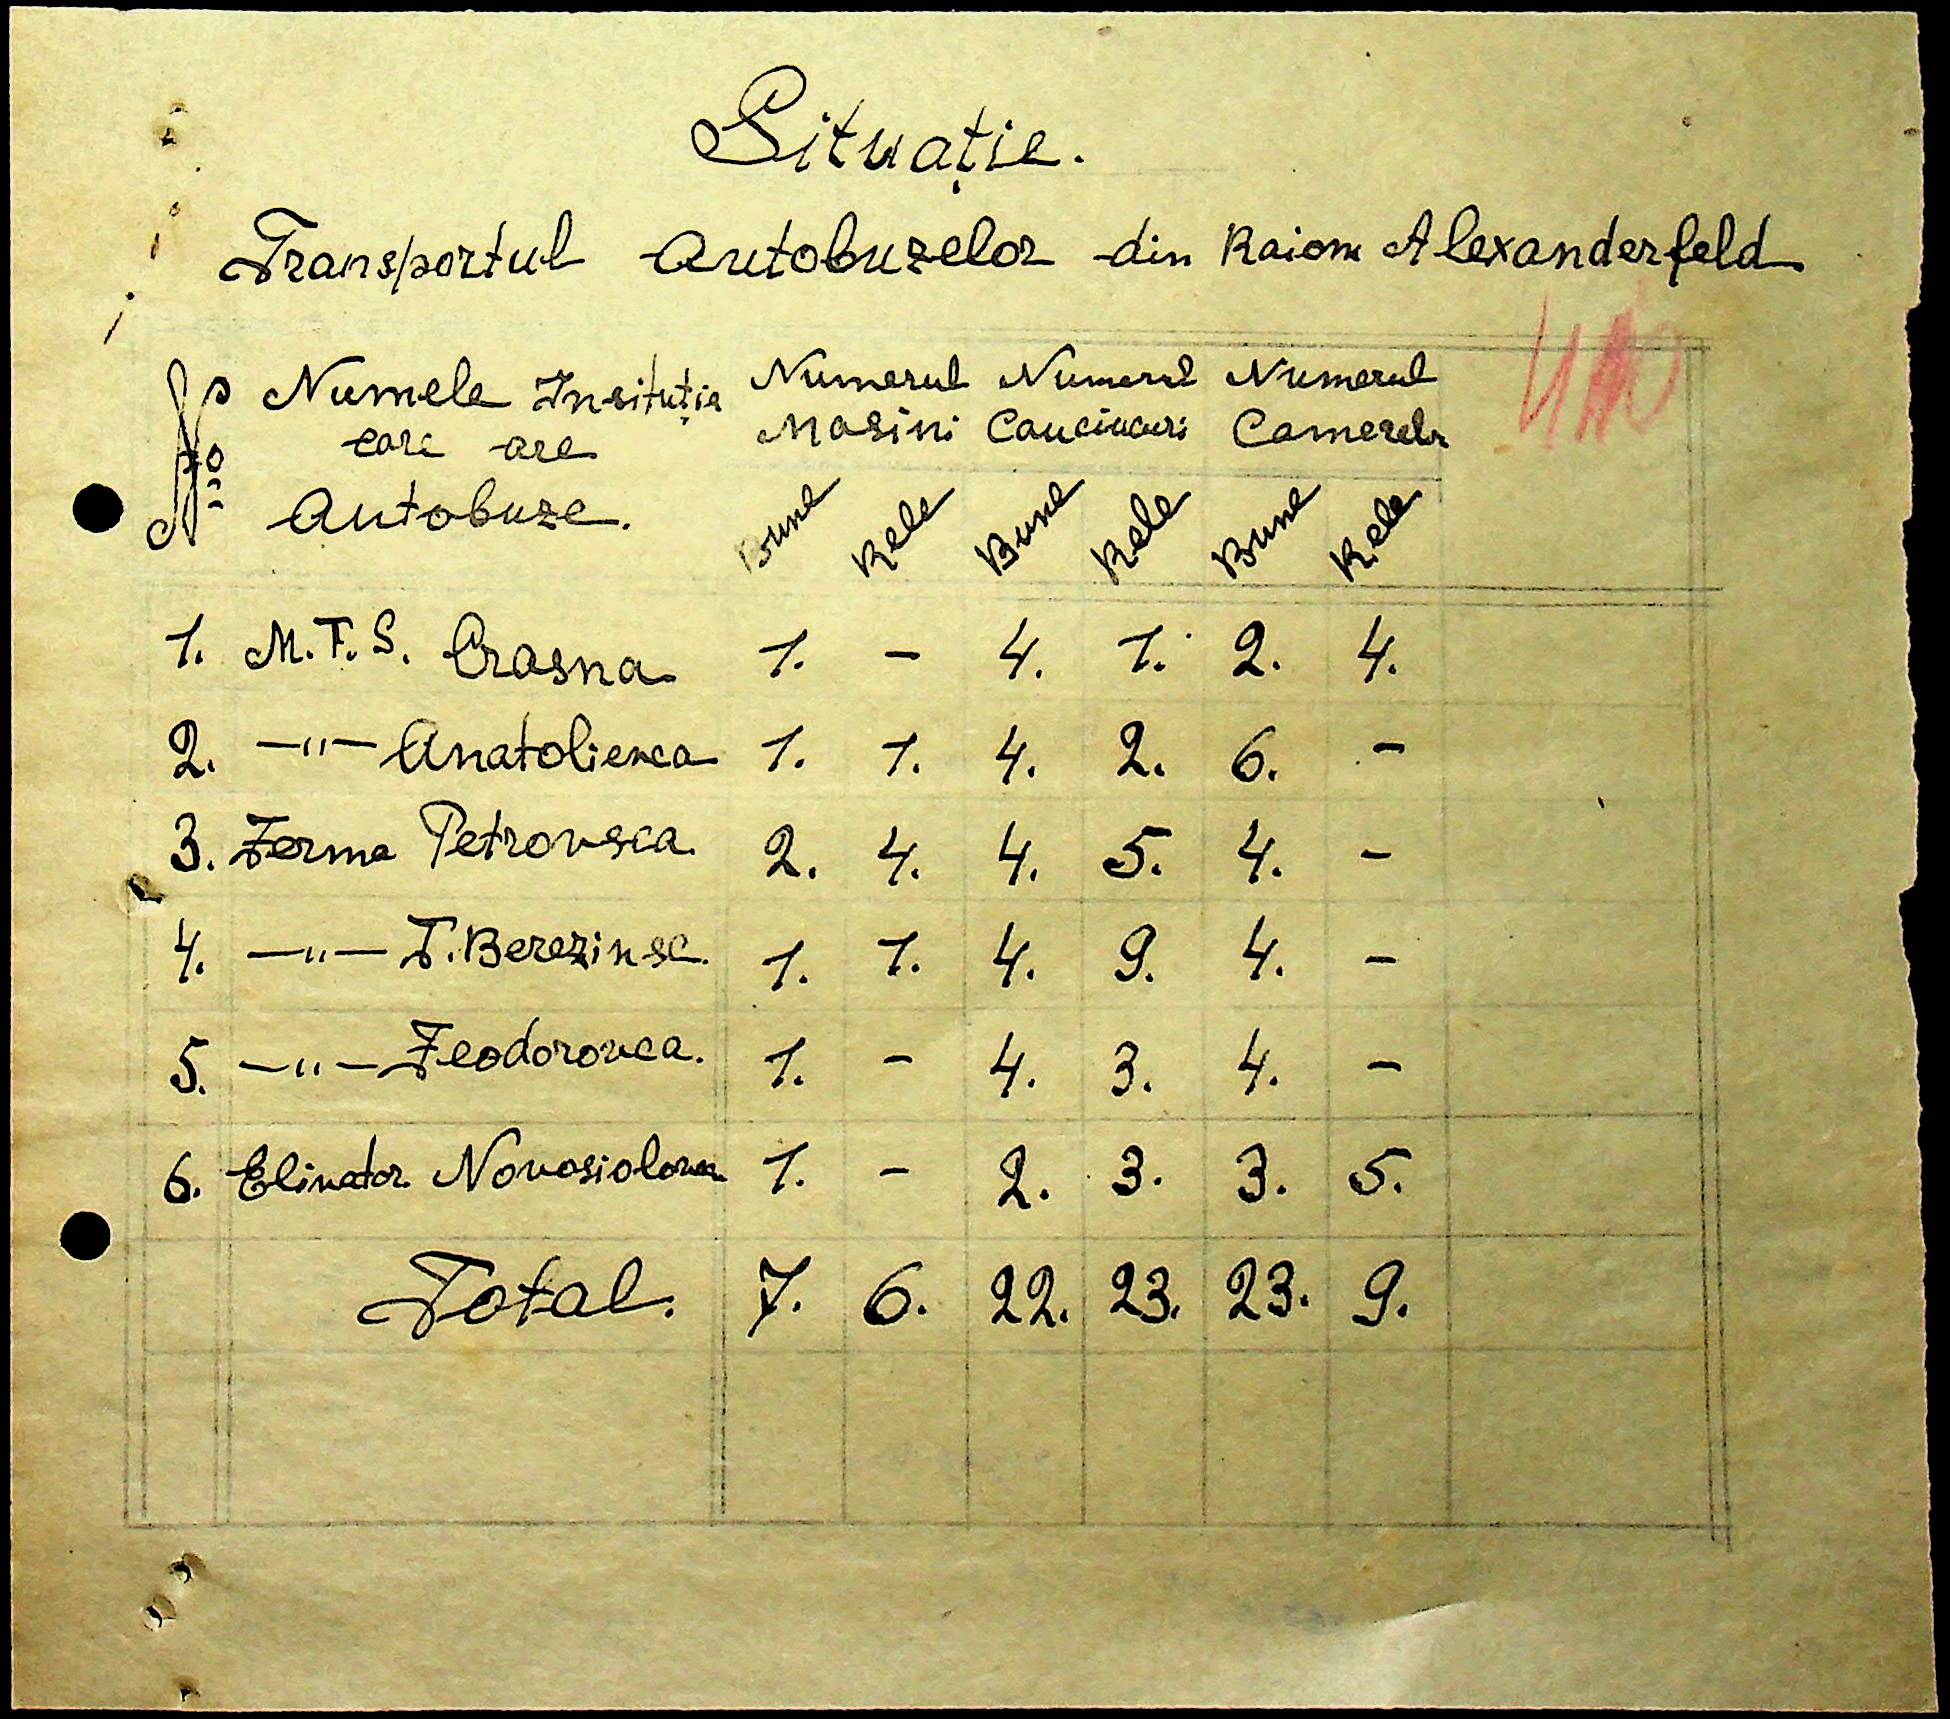 Situație.
Transportul Autobuzelor din Raion Alexanderfeld
Numele Insituția Numerul Numerul Numerul
care are Masini Cauciucuri Camerelor
Autobuze. Bune Rele Bune Rele Bune Rele
1. M.T.S. Crasna 1. - 4. 1. 2. 4.
2. —"— Anatolievca 1. 1. 4. 2. 6. -
3. Ferma Petrovsca. 2. 4. 4. 5. 4. -
4. —"— F. Berezinsc. 1. 1. 4. 9. 4. -
5. —"— Feodorovca. 1. - 4. 3. 4. -
6. Elivator Novosiolovca 1. - 2. 3. 3. 5.
Total. 7. 6. 22. 23. 23. 9.